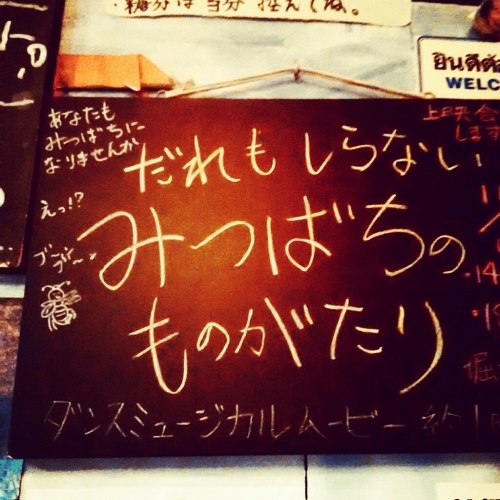 ・糖分は当分控えてね。
ยินดีต้อ
WELC
あなたも
みつばちに
なりませんか
えっ!?
ブーン
ブーン
だれもしらない
みつばちの
ものがたり
ダンスミュージカルムービー 約1
上映会
します
・14
・19
堀